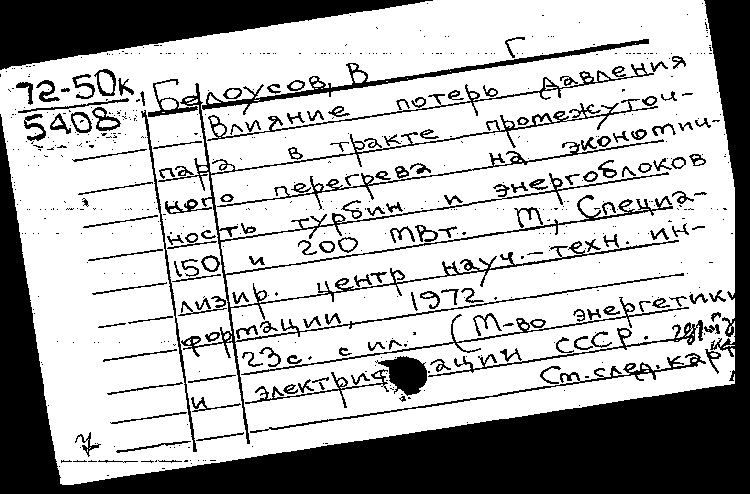 72-50к.
5408
Белоусов, В Г
Влияние потерь давления
пара в тракте промежуточ-
ного перегрева на экономич-
ность турбин и энергоблоков
150 и 200 МВт. М., Специа-
лизир. центр науч.-техн. ин-
формации, 1972.
23с. с ил. (М-во энергетики
и электрификации СССР.
См. след. карт